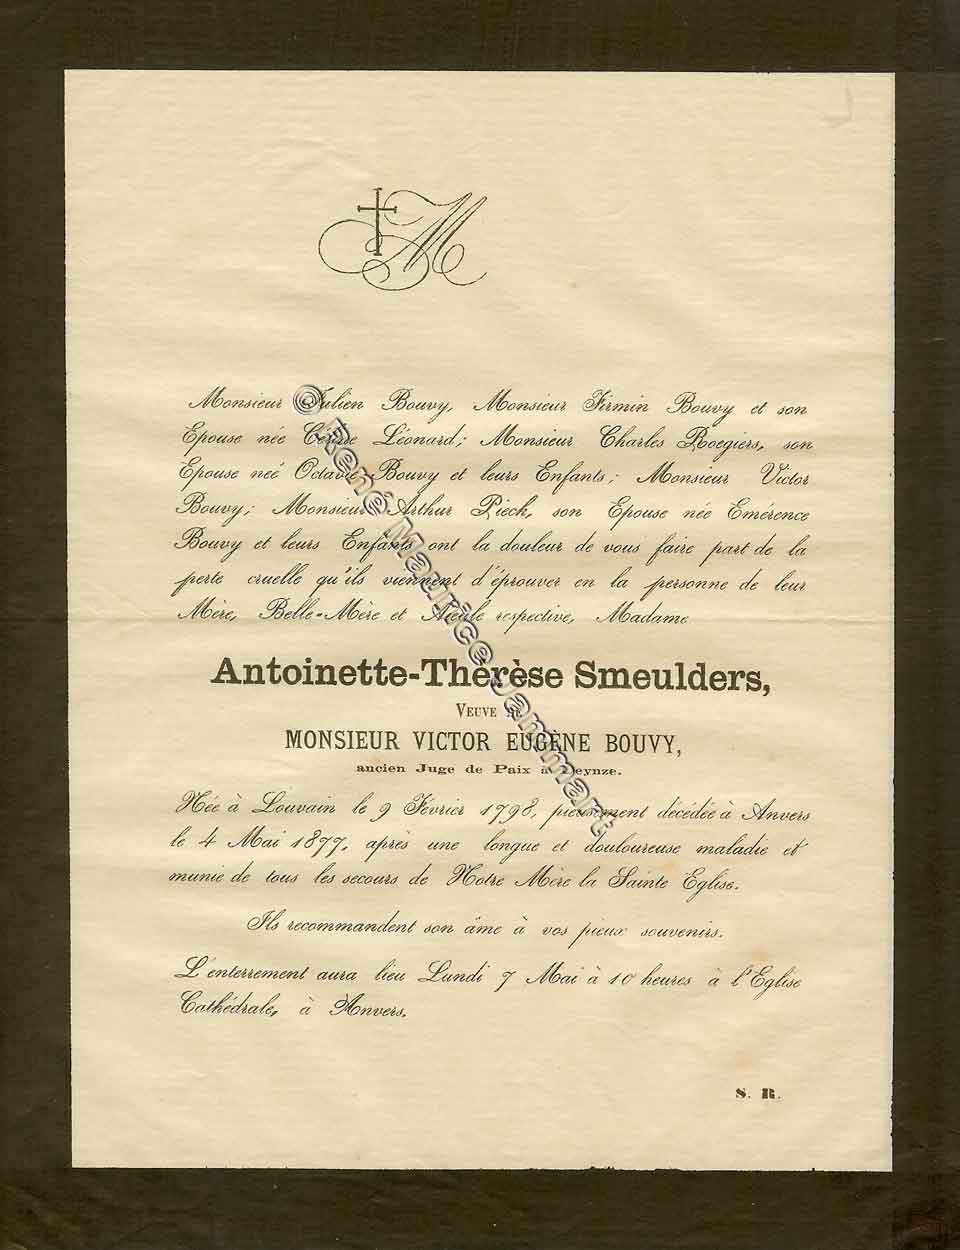 M
Monsieur Julien Bouvy, Monsieur Firmin Bouvy et son
Epouse née Léonard; Monsieur Charles Roegiers, son
Epouse neé Octavie Bouvy et leurs Enfants; Monsieur Victor
Bouvy; Monsieur Arthur Pieck, son Epouse née Emérence
Bouvy et leurs Enfants ont la douleur de vous faire part de la
perte cruelle qu'ils viennent d'éprouver en la personne de leur
Mère, Belle-Mère et Aïeule respective, Madame
Antoinette-Therèse Smeulders,
Veuve de
MONSIEUR VICTOR EUGÈNE BOUVY,
ancien Juge de Paix à Deynze.
Née à Louvain le 9 Février 1798, pieusement décédée à Anvers
le 4 Mai 1877, après une longue et douloureuse maladie et
munie de tous les secours de Notre Mère la Sainte Eglise.
Ils recommandent son âme à vos pieux souvenirs.
L'enterrement aura lieu Lundi 7 Mai à 10 heures à l'Eglise
Cathédrale, à Anvers.
S. R.
© René Maurice Jammart